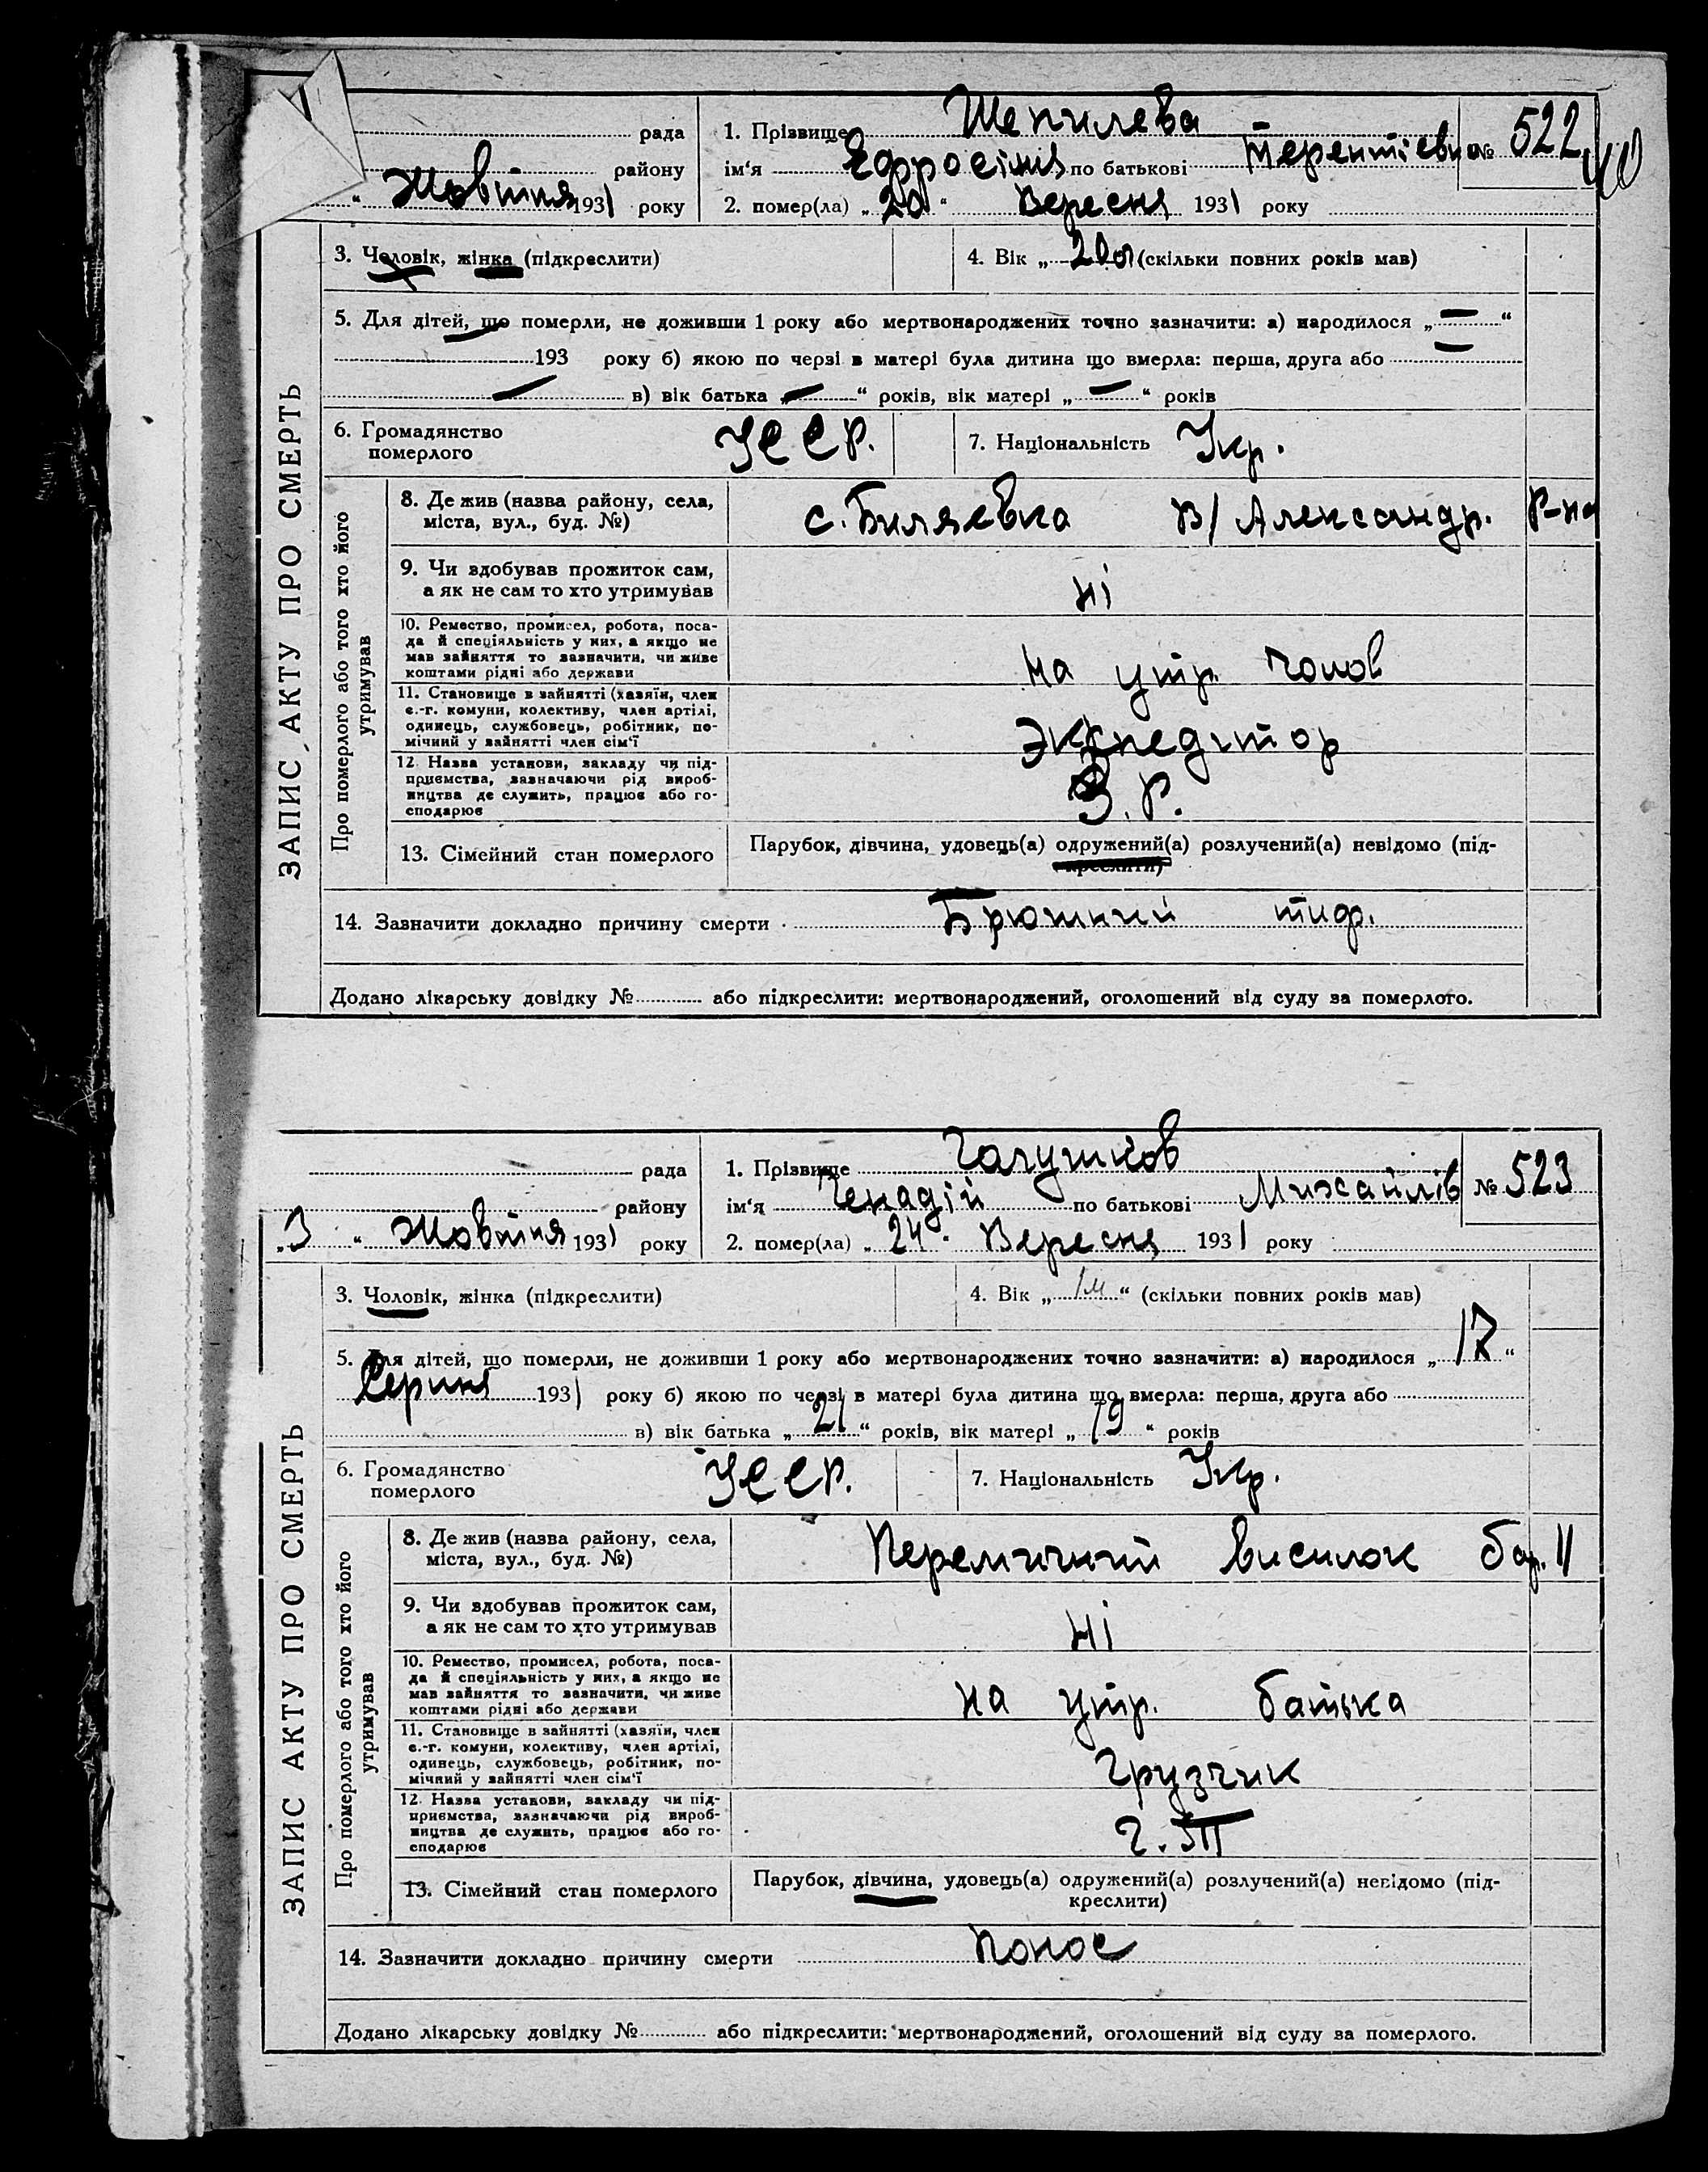 рада
району
" Жовтня 1931 року
1. Прізвище Шепилева
ім'я Ефросінія по батькові Терентієвна № 522
40
2. помер(ла) „ 20 " Вересня 1931 року
3. Чоловік, жінка (підкреслити)
4. Вік „ 20 (скільки повних років мав)
5. Для дітей, що померли, не доживши 1 року або мертвонароджених точно зазначити: а) народилося „ — "
193 року б) якою по черзі в матері була дитина що вмерла: перша, друга або —
— в) вік батька „ — " років, вік матері „ — " років
6. Громадянство померлого УССР.
7. Національність Укр.
ЗАПИС АКТУ ПРО СМЕРТЬ
Про померлого або того хто його утримував
8. Де жив (назва району, села,
міста, вул., буд. №)
с. Биляевка В/Александр. Р-на
9. Чи здобував прожиток сам,
а як не сам то хто утримував
Ні
10. Ремество, промисел, робота, поса-
да й спеціяльність у них, а якщо не
мав зайняття то зазначити, чи живе
коштами рідні або держави
на утр. чолов
11. Становище в зайнятті (хазяїн, член
с.-г. комуни, колективу, член артілі,
одинець, службовець, робітник, по-
мічний у зайнятті член сім'ї
Экспедітор
12. Назва установи, закладу чи під-
приємства, зазначаючи рід вироб-
ництва де служить, працює або го-
сподарює
З. Р.
13. Сімейний стан померлого
Парубок, дівчина, удовець(а) одружений(а) розлучений(а) невідомо (під-
креслити)
14. Зазначити докладно причину смерти Брюшний тиф.
Додано лікарську довідку № або підкреслити: мертвонароджений, оголошений від суду за померлого.
рада
району
„ 3 " Жовтня 1931 року
1. Прізвище Галушков
ім'я Генадій по батькові Михайлів № 523
2. помер(ла) „ 24 " Вересня 1931 року
3. Чоловік, жінка (підкреслити)
4. Вік „ 1м " (скільки повних років мав)
5. Для дітей, що померли, не доживши 1 року або мертвонароджених точно зазначити: а) народилося „ 17 "
Серпня 1931 року б) якою по черзі в матері була дитина що вмерла: перша, друга або
в) вік батька „ 21 " років, вік матері „ 19 " років
6. Громадянство померлого УССР.
7. Національність Укр.
ЗАПИС АКТУ ПРО СМЕРТЬ
Про померлого або того хто його утримував
8. Де жив (назва району, села,
міста, вул., буд. №)
висилок бар. 11
9. Чи здобував прожиток сам,
а як не сам то хто утримував
Ні
10. Ремество, промисел, робота, поса-
да й спеціяльність у них, а якщо не
мав зайняття то зазначити, чи живе
коштами рідні або держави
на утр. батька
11. Становище в зайнятті (хазяїн, член
с.-г. комуни, колективу, член артілі,
одинець, службовець, робітник, по-
мічний у зайнятті член сім'ї
Грузчик
12. Назва установи, закладу чи під-
приємства, зазначаючи рід вироб-
ництва де служить, працює або го-
сподарює
13. Сімейний стан померлого
Парубок, дівчина, удовець(а) одружений(а) розлучений(а) невідомо (під-
креслити)
14. Зазначити докладно причину смерти Понос
Додано лікарську довідку № або підкреслити: мертвонароджений, оголошений від суду за померлого.